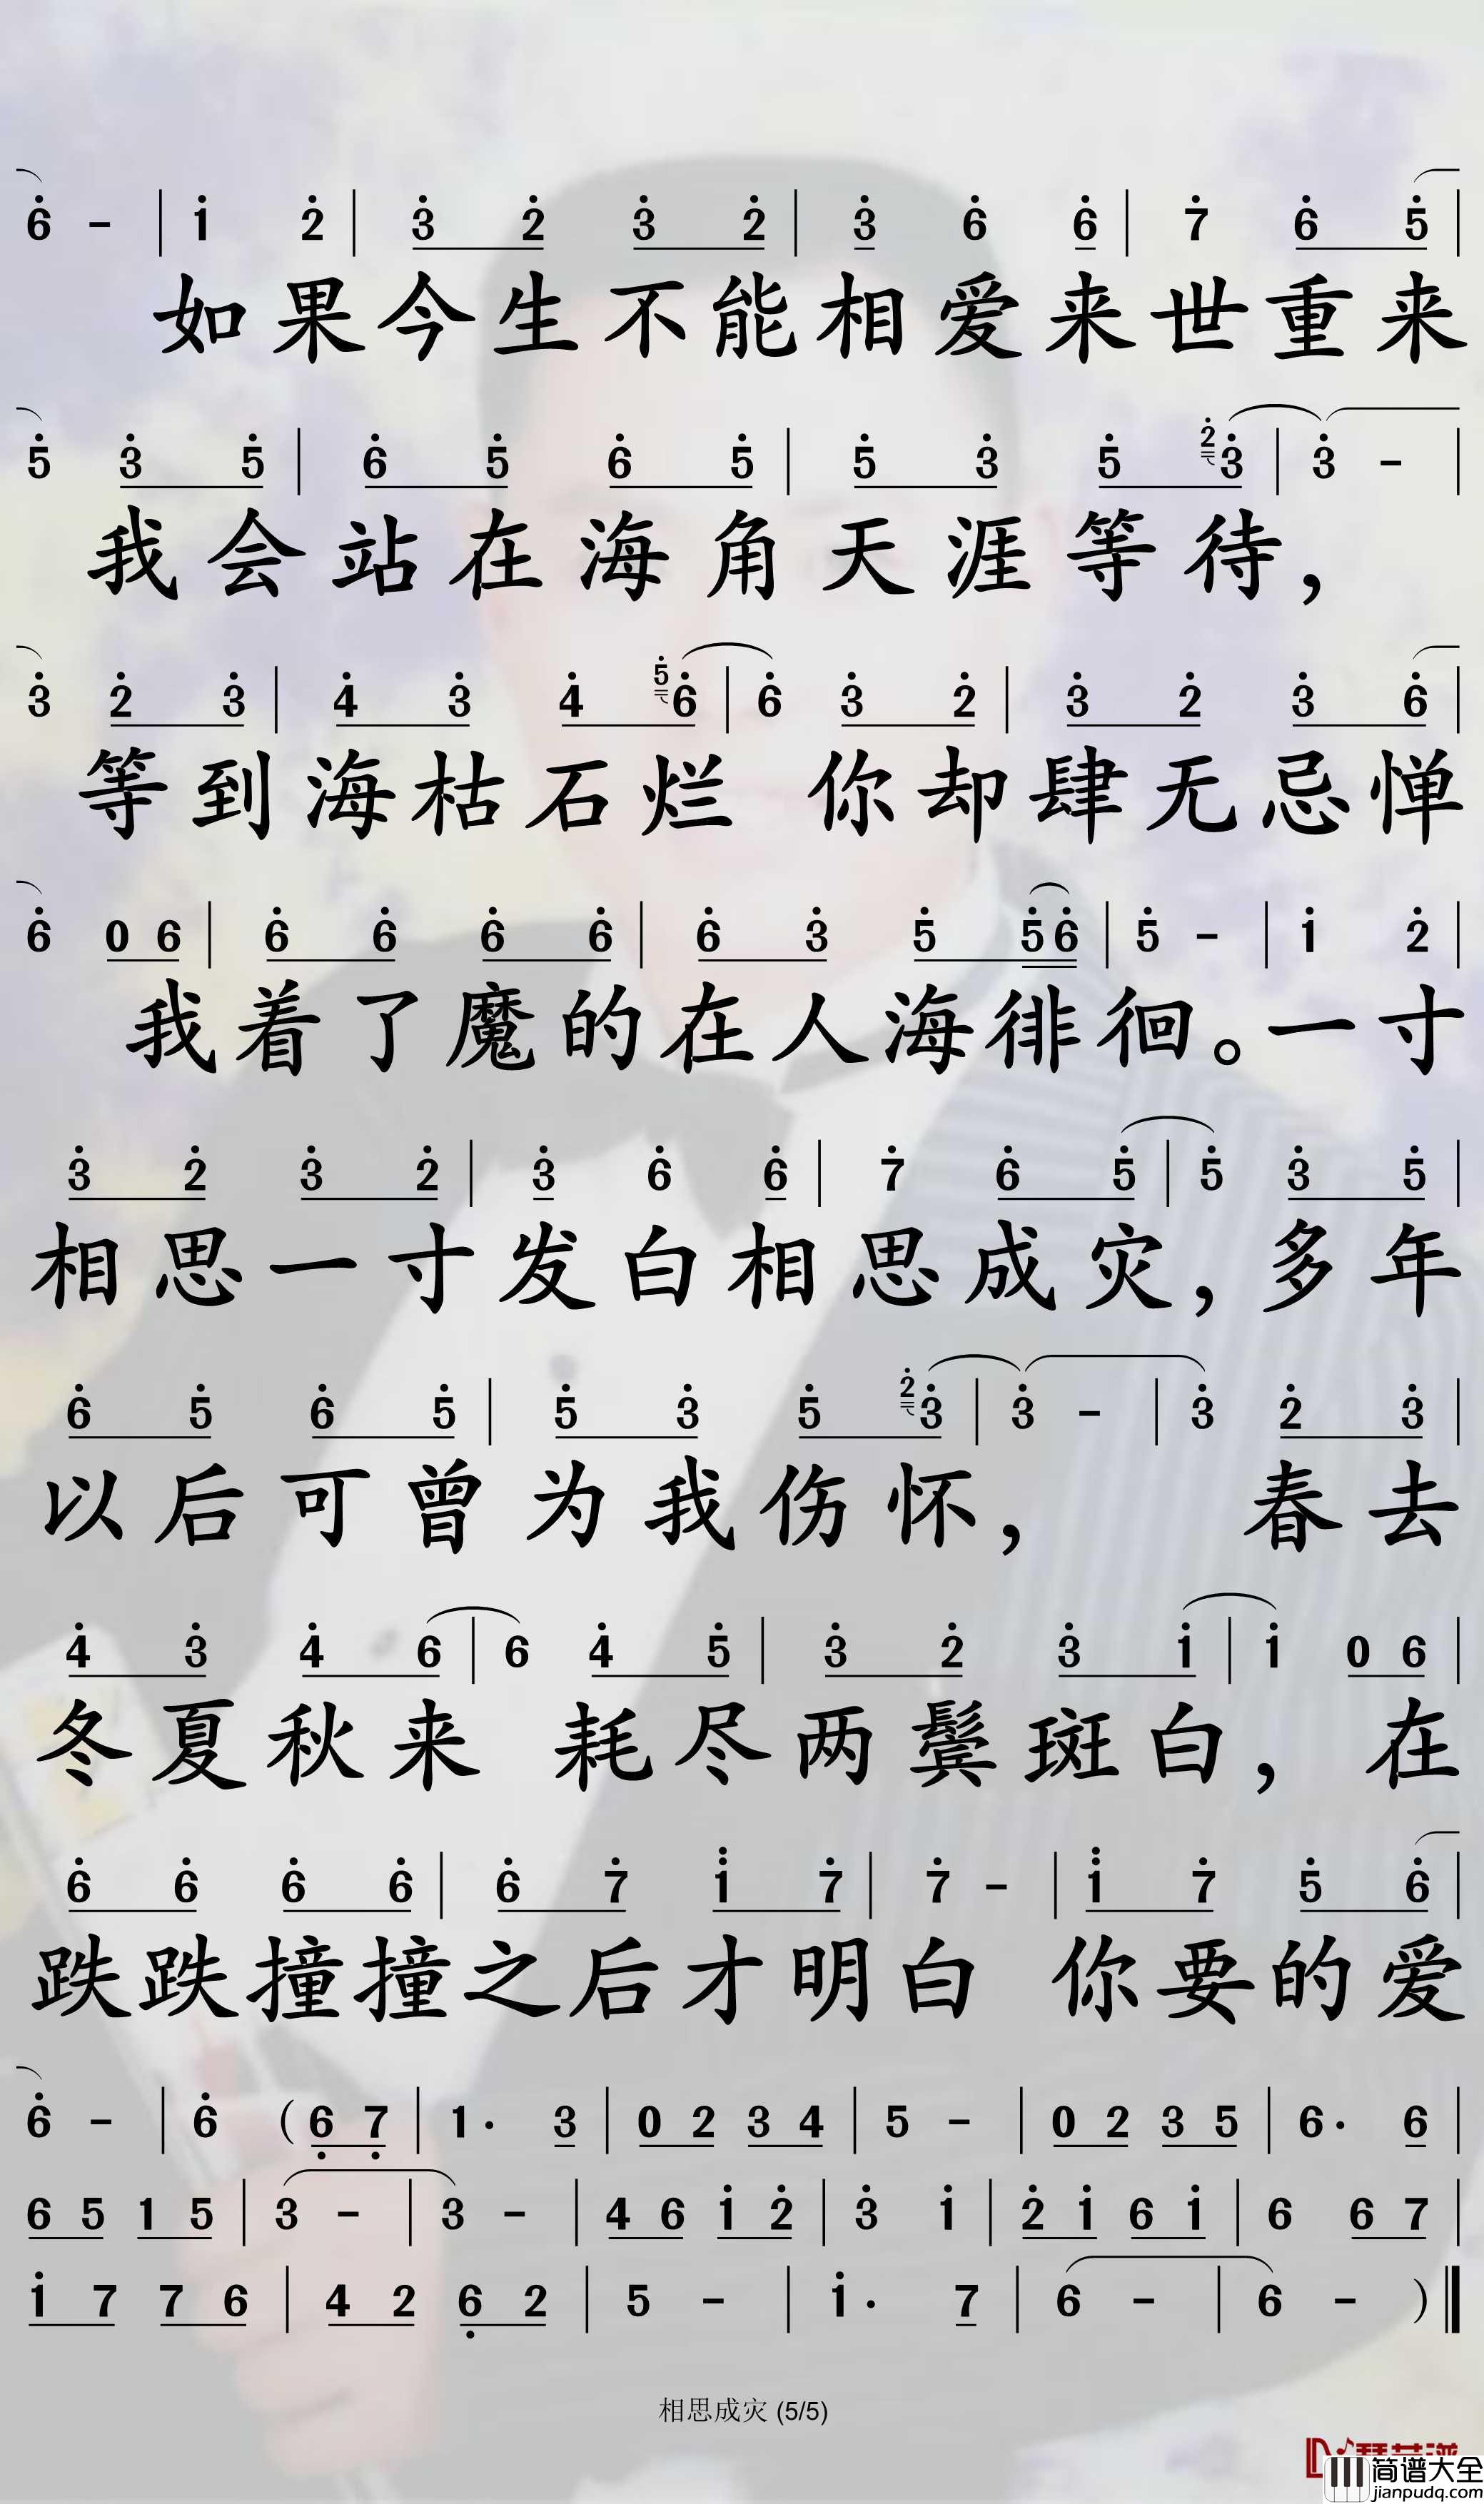 6 - | 1 2 | 3 2 3 2 | 3 6 6 | 7 6 5 |
如果今生不能相爱来世重来
5 3 5 | 6 5 6 5 | 5 3 5 2 3 | 3 - |
我会站在海角天涯等待，
3 2 3 | 4 3 4 5 6 | 6 3 2 | 3 2 3 6 |
等到海枯石烂 你却肆无忌惮
6 0 6 | 6 6 6 6 | 6 3 5 5 6 | 5 - | 1 2 |
我着了魔的在人海徘徊。一寸
3 2 3 2 | 3 6 6 | 7 6 5 | 5 3 5 |
相思一寸发白相思成灾，多年
6 5 6 5 | 5 3 5 2 3 | 3 - | 3 2 3 |
以后可曾为我伤怀， 春去
4 3 4 6 | 6 4 5 | 3 2 3 1 | 1 0 6 |
冬夏秋来 耗尽两鬓斑白，在
6 6 6 6 | 6 7 1 7 | 7 - | 1 7 5 6 |
跌跌撞撞之后才明白 你要的爱
6 - | 6 ( 6 7 | 1 . 3 | 0 2 3 4 | 5 - | 0 2 3 5 | 6 . 6 |
6 5 1 5 | 3 - | 3 - | 4 6 1 2 | 3 1 | 2 1 6 1 | 6 6 7 |
1 7 7 6 | 4 2 6 2 | 5 - | 1 . 7 | 6 - | 6 - ) ‖
相思成灾 (5/5)
简谱大全
jianpudq.com